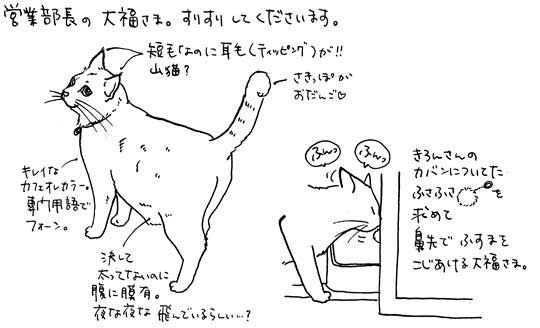 営業部長の 大福さま。すりすり してくださいます。
短毛なのに耳毛(ティッピング)が!!
山猫?
さきっぽが
おだんご♡
キレイな
カフェオレカラー。
専門用語で
フォーン。
決して
太ってないのに
腹に膜有。
夜な夜な 飛んでいるらしい…?
ふんっ
ふんっ
きろんさんの
カバンについてた
ふさふさ を
求めて
鼻先で ふすまを
こじあける大福さま。